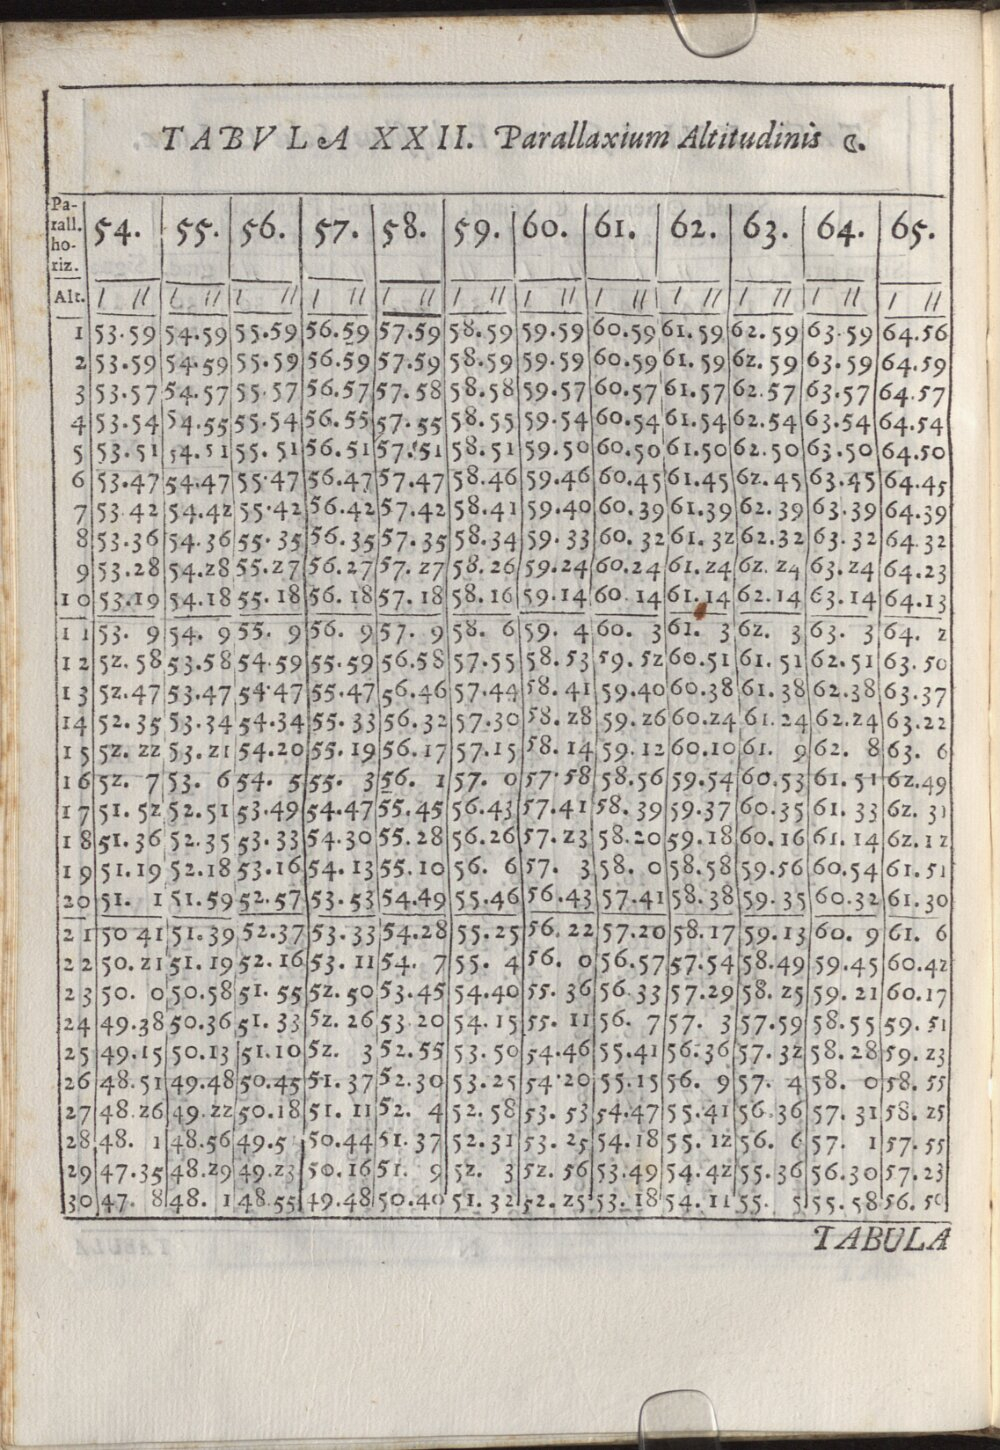 TABVLA XXII. Parallaxium Altitudinis ☾.
Parall. horiz. 54. 55. 56. 57. 58. 59. 60. 61. 62. 63. 64. 65.
Alt. I II I II I II I II I II I II I II I II I II I II I II I II
1 53.59 54.59 55.59 56.59 57.59 58.59 59.59 60.59 61.59 62.59 63.59 64.56
2 53.59 54.59 55.59 56.59 57.59 58.59 59.59 60.59 61.59 62.59 63.59 64.59
3 53.57 54.57 55.57 56.57 57.58 58.58 59.57 60.57 61.57 62.57 63.57 64.57
4 53.54 54.55 55.54 56.55 57.55 58.55 59.54 60.54 61.54 62.54 63.54 64.54
5 53.51 54.51 55.51 56.51 57.51 58.51 59.50 60.50 61.50 62.50 63.50 64.50
6 53.47 54.47 55.47 56.47 57.47 58.46 59.46 60.45 61.45 62.45 63.45 64.45
7 53.42 54.42 55.42 56.42 57.42 58.41 59.40 60.39 61.39 62.39 63.39 64.39
8 53.36 54.36 55.35 56.35 57.35 58.34 59.33 60.32 61.32 62.32 63.32 64.32
9 53.28 54.28 55.27 56.27 57.27 58.26 59.24 60.24 61.24 62.24 63.24 64.23
10 53.19 54.18 55.18 56.18 57.18 58.16 59.14 60.14 61.14 62.14 63.14 64.13
11 53. 9 54. 9 55. 9 56. 9 57. 9 58. 6 59. 4 60. 3 61. 3 62. 3 63. 3 64. 2
12 52.58 53.58 54.59 55.59 56.58 57.55 58.53 59.52 60.51 61.51 62.51 63.50
13 52.47 53.47 54.47 55.47 56.46 57.44 58.41 59.40 60.38 61.38 62.38 63.37
14 52.35 53.34 54.34 55.33 56.32 57.30 58.28 59.26 60.24 61.24 62.24 63.22
15 52.22 53.21 54.20 55.19 56.17 57.15 58.14 59.12 60.10 61. 9 62. 8 63. 6
16 52. 7 53. 6 54. 5 55. 3 56. 1 57. 0 57.58 58.56 59.54 60.53 61.51 62.49
17 51.52 52.51 53.49 54.47 55.45 56.43 57.41 58.39 59.37 60.35 61.33 62.31
18 51.36 52.35 53.33 54.30 55.28 56.26 57.23 58.20 59.18 60.16 61.14 62.12
19 51.19 52.18 53.16 54.13 55.10 56. 6 57. 3 58. 0 58.58 59.56 60.54 61.51
20 51. 1 51.59 52.57 53.53 54.49 55.46 56.43 57.41 58.38 59.35 60.32 61.30
21 50 41 51.39 52.37 53.33 54.28 55.25 56.22 57.20 58.17 59.13 60. 9 61. 6
22 50.21 51.19 52.16 53.11 54. 7 55. 4 56. 0 56.57 57.54 58.49 59.45 60.42
23 50. 0 50.58 51.55 52.50 53.45 54.40 55.36 56.33 57.29 58.25 59.21 60.17
24 49.38 50.36 51.33 52.26 53.20 54.15 55.11 56. 7 57. 3 57.59 58.55 59.51
25 49.15 50.13 51.10 52. 3 52.55 53.50 54.46 55.41 56.36 57.32 58.28 59.23
26 48.51 49.48 50.45 51.37 52.30 53.25 54.20 55.15 56. 9 57. 4 58. 0 58.55
27 48.26 49.22 50.18 51.11 52. 4 52.58 53.53 54.47 55.41 56.36 57.31 58.25
28 48. 1 48.56 49.5 50.44 51.37 52.31 53.25 54.18 55.12 56. 6 57. 1 57.55
29 47.35 48.29 49.23 50.16 51. 9 52. 3 52.56 53.49 54.42 55.36 56.30 57.23
30 47. 8 48. 1 48.55 49.48 50.40 51.32 52.25 53.18 54.11 55. 5 55.58 56.50
TABULA